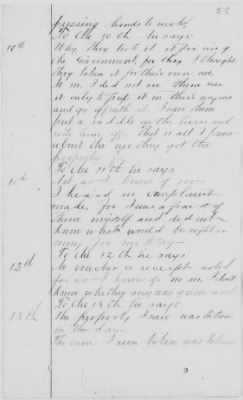 pressing hands to work,
To the 10th he says:
10th Why they took it for use of
the Government, for they I thought
they taken it for their own use.
I did not see them use
it only to put it in their wagons
and go off with it. I saw them
put a saddle on the horse and
ride him off. That is all I know
about the use they got the
property
To the 11th he says:
11th Not as I know on
I heard no complaint
made, for I was afraid of
them myself and did not
know what would be right or
wrong for me to say.
To the 12th he says:
12th No voucher or receipt asked
for as I know of no sir. I don't
know whether any was given
To the 13th he says:
13th The property I saw was taken
in the day
The corn I seen taken was taken